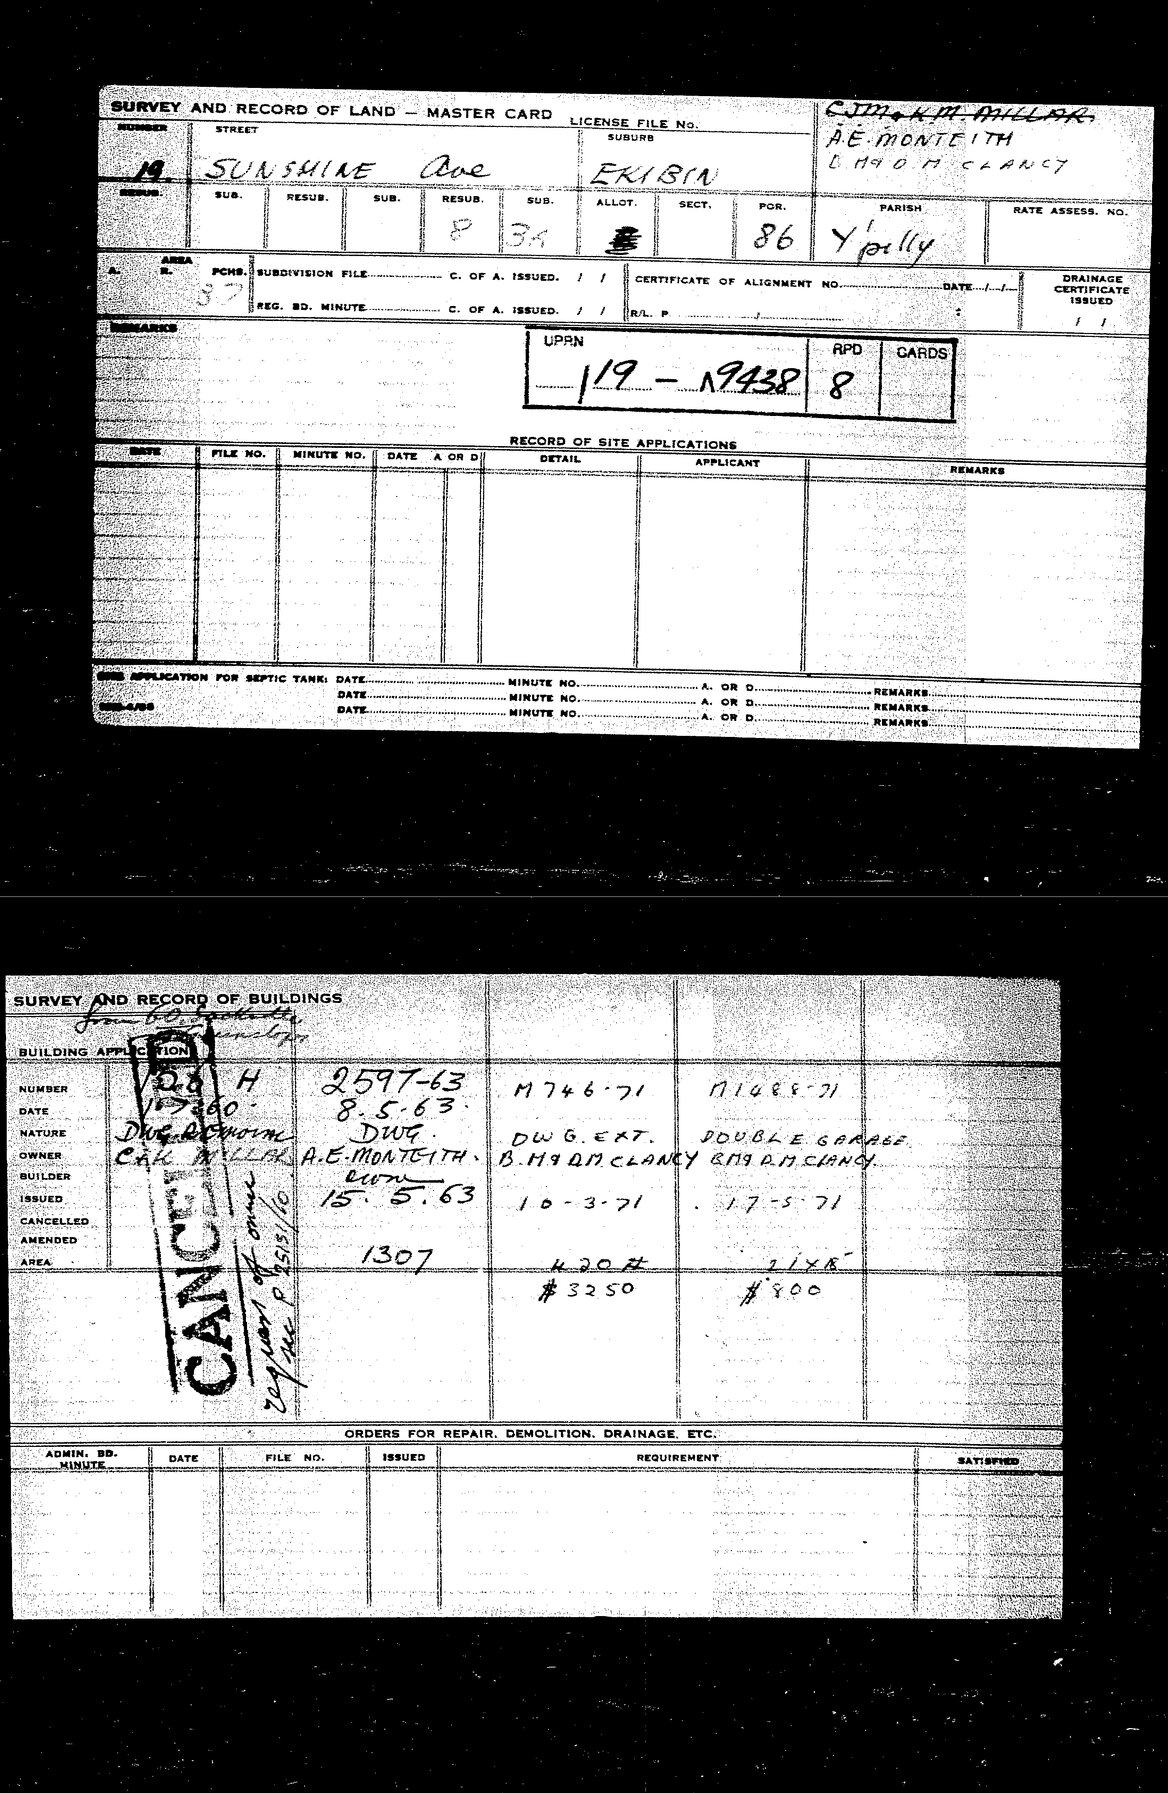 SURVEY AND RECORD OF LAND — MASTER CARD LICENSE FILE NO.
CJM & K M MILLAR
A.E. MONTEITH
B M & D M CLANCY
NUMBER STREET SUBURB
19. SUNSHINE Ave EKIBIN
RESUB. SUB. RESUB. SUB. RESUB. SUB. ALLOT. SECT. POR. PARISH RATE ASSESS. NO.
8 86 Y'pilly
AREA
A. R. PCHS.
37
SUBDIVISION FILE C. OF A. ISSUED. / /
REG. BD. MINUTE C. OF A. ISSUED. / /
CERTIFICATE OF ALIGNMENT NO. DATE / /
R/L. P /
DRAINAGE
CERTIFICATE
ISSUED
/ /
REMARKS
UPRN RPD CARDS
119 — 19438 8
RECORD OF SITE APPLICATIONS
DATE FILE NO. MINUTE NO. DATE A OR D DETAIL APPLICANT REMARKS
SITE APPLICATION FOR SEPTIC TANK: DATE MINUTE NO. A. OR D. REMARKS
DATE MINUTE NO. A. OR D. REMARKS
DATE MINUTE NO. A. OR D. REMARKS
SURVEY AND RECORD OF BUILDINGS
from 60
BUILDING APPLICATION
NUMBER H 2597-63 M746-71 M1488-71
DATE 8.5.63.
NATURE DWG DWG. DWG. EXT. DOUBLE GARAGE
OWNER MILLAR A.E. MONTEITH. B. M & D M CLANCY B M & D. M CLANCY.
BUILDER
ISSUED 15.5.63 10-3-71 17-5-71
CANCELLED
AMENDED
AREA 1307 420
$3250 $800
CANCELLED
request of owner
ORDERS FOR REPAIR. DEMOLITION. DRAINAGE. ETC.
ADMIN. BD.
MINUTE DATE FILE NO. ISSUED REQUIREMENT SATISFIED